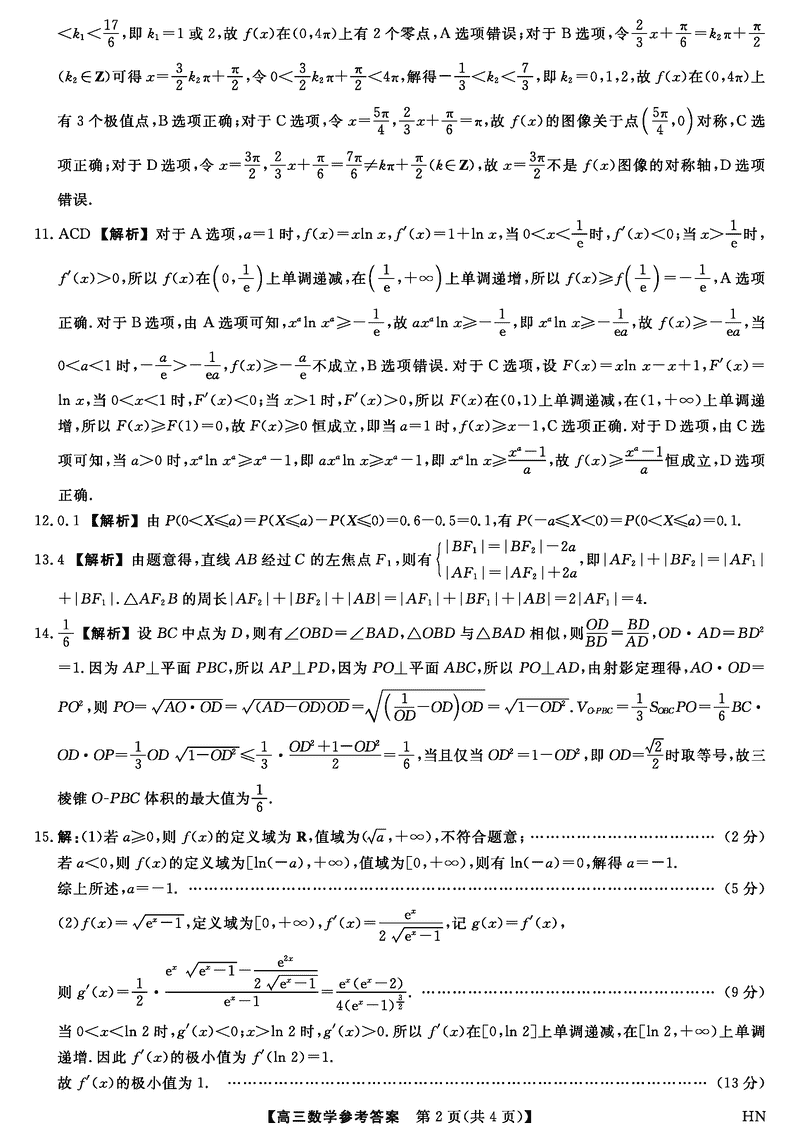 <k₁<17/6,即 k₁=1 或 2,故 f(x)在(0,4π)上有 2 个零点,A 选项错误;对于 B 选项,令 2/3 x+π/6=k₂π+π/2
(k₂∈Z)可得 x=3/2 k₂π+π/2,令 0<3/2 k₂π+π/2<4π,解得-1/3<k₂<7/3,即 k₂=0,1,2,故 f(x)在(0,4π)上
有 3 个极值点,B 选项正确;对于 C 选项,令 x=5π/4,2/3 x+π/6=π,故 f(x)的图像关于点(5π/4,0)对称,C 选
项正确;对于 D 选项,令 x=3π/2,2/3 x+π/6=7π/6≠kπ+π/2(k∈Z),故 x=3π/2不是 f(x)图像的对称轴,D 选项
错误.
11. ACD 【解析】对于 A 选项,a=1 时,f(x)=xln x,f′(x)=1+ln x,当 0<x<1/e时,f′(x)<0;当 x>1/e时,
f′(x)>0,所以 f(x)在(0,1/e)上单调递减,在(1/e,+∞)上单调递增,所以 f(x)≥f(1/e)=-1/e,A 选项
正确.对于 B 选项,由 A 选项可知,xᵃln xᵃ≥-1/e,故 axᵃln x≥-1/e,即 xᵃln x≥-1/ea,故 f(x)≥-1/ea,当
0<a<1 时,-a/e>-1/ea,f(x)≥-a/e不成立,B 选项错误.对于 C 选项,设 F(x)=xln x-x+1,F′(x)=
ln x,当 0<x<1 时,F′(x)<0;当 x>1 时,F′(x)>0,所以 F(x)在(0,1)上单调递减,在(1,+∞)上单调递
增,所以 F(x)≥F(1)=0,故 F(x)≥0 恒成立,即当 a=1 时,f(x)≥x-1,C 选项正确.对于 D 选项,由 C 选
项可知,当 a>0 时,xᵃln xᵃ≥xᵃ-1,即 axᵃln x≥xᵃ-1,即 xᵃln x≥(xᵃ-1)/a,故 f(x)≥(xᵃ-1)/a恒成立,D 选项
正确.
12. 0.1 【解析】由 P(0<X≤a)=P(X≤a)-P(X≤0)=0.6-0.5=0.1,有 P(-a≤X<0)=P(0<X≤a)=0.1.
13. 4 【解析】由题意得,直线 AB 经过 C 的左焦点 F₁,则有{|BF₁|=|BF₂|-2a |AF₁|=|AF₂|+2a,即|AF₂|+|BF₂|=|AF₁|
+|BF₁|.△AF₂B 的周长|AF₂|+|BF₂|+|AB|=|AF₁|+|BF₁|+|AB|=2|AF₁|=4.
14. 1/6 【解析】设 BC 中点为 D,则有∠OBD=∠BAD,△OBD 与△BAD 相似,则OD/BD=BD/AD,OD·AD=BD²
=1.因为 AP⊥平面 PBC,所以 AP⊥PD,因为 PO⊥平面 ABC,所以 PO⊥AD,由射影定理得,AO·OD=
PO²,则 PO=√(AO·OD)=√((AD-OD)OD)=√((1/OD-OD)OD)=√(1-OD²).V_{O-PBC}=1/3 S_{OBC}PO=1/6 BC·
OD·OP=1/3 OD √(1-OD²)≤1/3·(OD²+1-OD²)/2=1/6,当且仅当 OD²=1-OD²,即 OD=√2/2时取等号,故三
棱锥 O-PBC 体积的最大值为1/6.
15. 解:(1)若 a≥0,则 f(x)的定义域为 R,值域为(√a,+∞),不符合题意; ……………………………… (2 分)
若 a<0,则 f(x)的定义域为[ln(-a),+∞),值域为[0,+∞),则有 ln(-a)=0,解得 a=-1.
综上所述,a=-1. ………………………………………………………………………………………… (5 分)
(2)f(x)=√(eˣ-1),定义域为[0,+∞),f′(x)=eˣ/(2√(eˣ-1)),记 g(x)=f′(x),
则 g′(x)=1/2·(eˣ√(eˣ-1)-e²ˣ/(2√(eˣ-1)))/(eˣ-1)=eˣ(eˣ-2)/(4(eˣ-1)^(3/2)). ………………………………………………… (9 分)
当 0<x<ln 2 时,g′(x)<0;x>ln 2 时,g′(x)>0.所以 f′(x)在[0,ln 2]上单调递减,在[ln 2,+∞)上单调
递增.因此 f′(x)的极小值为 f′(ln 2)=1.
故 f′(x)的极小值为 1. ………………………………………………………………………………… (13 分)
【高三数学参考答案 第 2 页(共 4 页)】 HN